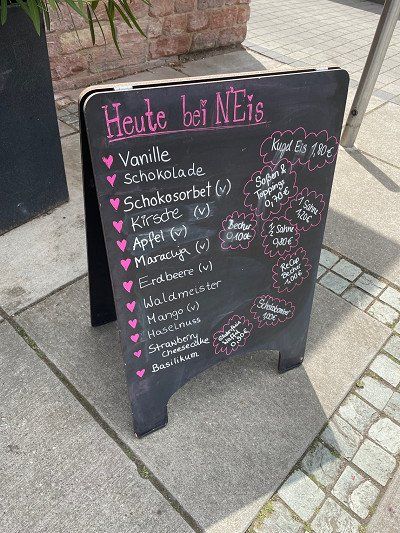 Heute bei N'Eis
Vanille
Schokolade
Schokosorbet (v)
Kirsche (v)
Apfel (v)
Maracuja (v)
Erdbeere (v)
Waldmeister
Mango (v)
Haselnuss
Strawberry
Cheesecake
Basilikum
Kugel Eis 1,80€
Soßen &
Toppings
0,70€
1 Sahne
1,20€
Becher
0,10€€
½ Sahne
0,80€
ReCup
Becher
1,00€
Schokowaffel
1,00€
Waffel
0,50€